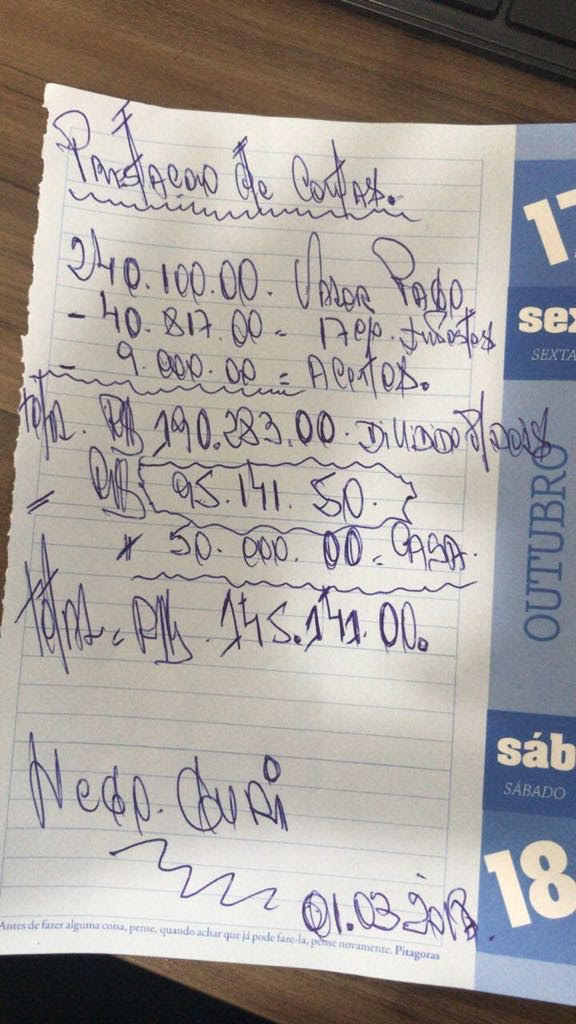 Prestação de Contas.
240.100.00. Valor Pago
- 40.817.00 = 17%. Impostos
- 9.000.00 = Acertos.
total. R$ 190.283.00. Dividido P/ dois
= R$ 95.141.50.
50.000.00 = CASA.
total = R$. 145.141.00.
01.03.2018.
Antes de fazer alguma coisa, pense, quando achar que já pode faze-la, pense novamente. Pitagoras
17
sex
SEXTA
OUTUBRO
sáb
SÁBADO
18